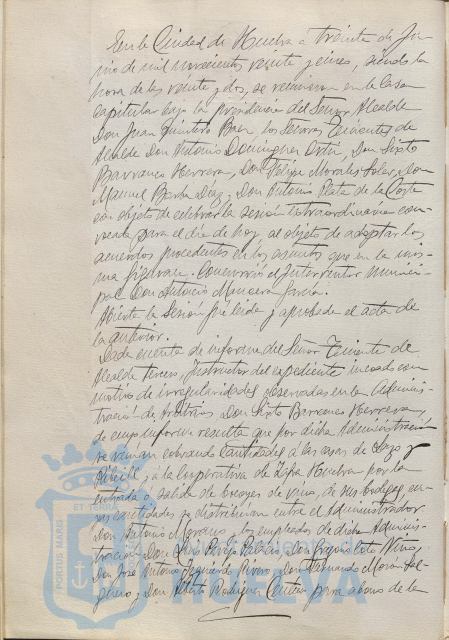 En la Ciudad de Huelva a treinta de Ju-
nio de mil novecientos veinte y cinco, siendo la
hora de las veinte y dos, se reunieron en la Casa
capitular bajo la presidencia del Señor Alcalde
Don Juan Quintero Baez los Señores Tenientes de
Alcalde Don Antonio Dominguez Ortiz, Don Sixto
Barranco Herrera, Don Felipe Morales Soler, Don
Manuel Barba Diaz, Don Antonio Plata de la Corte
con objeto de celebrar la sesión extraordinaria con-
vocada para el dia de hoy al objeto de adoptar los
acuerdos procedentes en los asuntos que en la mis-
ma figuran. Concurrió el Interventor munici-
pal Don Antonio García.
Abierta la Sesión fué leida y aprobada el acta de
la anterior.
Dada cuenta de informe del Señor Teniente de
Alcalde tercero, Instructor del expediente incoado con
motivo de irregularidades observadas en la Adminis-
tración de Arbitrios Don Sixto Barranco Herrera,
de cuyo informe resulta que por dicha Administración
se venian cobrando cantidades a las casas de Lazo y
y a la Cooperativa de Huelva por la
entrada o salida de bocoyes de vino, de sus bodegas, cu-
yas cantidades se distribuian entre el Administrador
Don Antonio Morales y los empleados de dicha Adminis-
tración Don Luis Don
Don José Antonio Izquierdo Don Moran
y Don Rodriguez para abono de la
PORTUS MARIS ET TERRAE
HUELVA